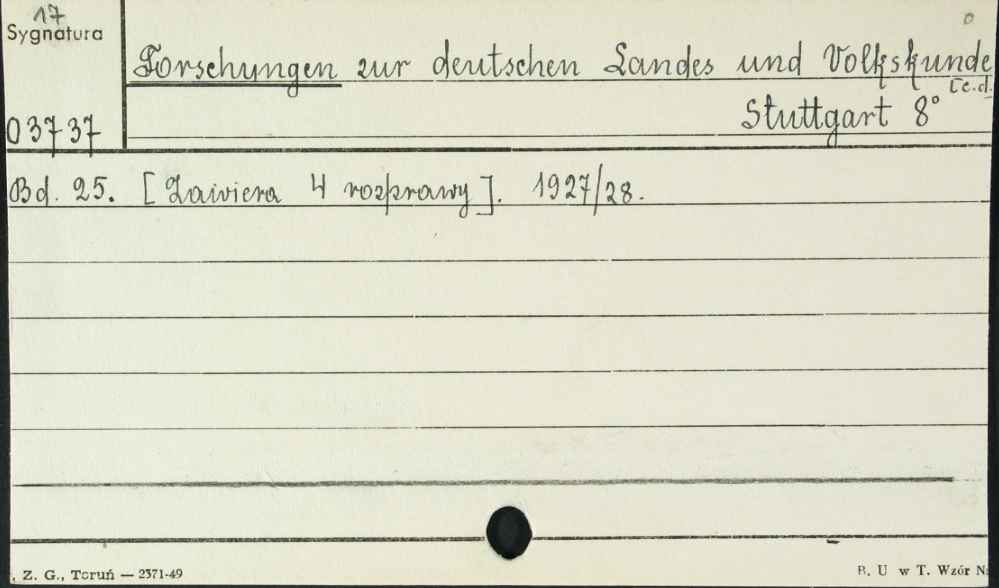 17
Sygnatura
Forschungen zur deutschen Landes und Volkskunde
[c.d.
Stuttgart 8°
03737
Bd. 25. [Zawiera 4 rozprawy]. 1927/28.
. Z. G., Toruń — 2371-49
B. U w T. Wzór N